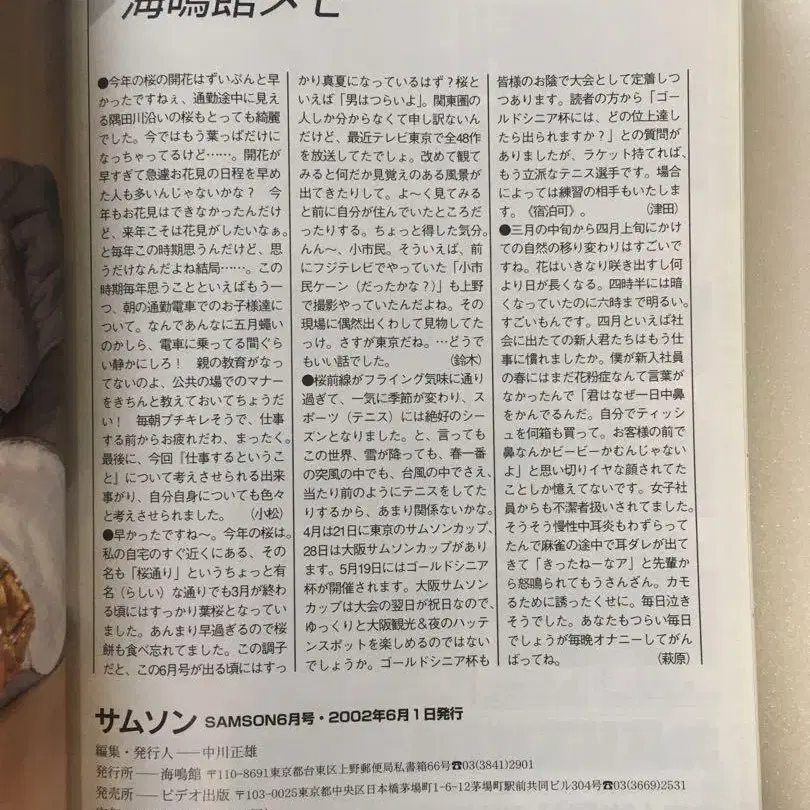 海鳴館メモ
●今年の桜の開花はずいぶんと早
かったですねぇ、通勤途中に見え
る隅田川沿いの桜もとっても綺麗
でした。今ではもう葉っぱだけに
なっちゃってるけど……。開花が
早すぎて急遽お花見の日程を早め
た人も多いんじゃないかな？　今
年もお花見はできなかったんだけ
ど、来年こそは花見がしたいなぁ。
と毎年この時期思うんだけど、思
うだけなんだよね結局……。この
時期毎年思うことといえばもう一
つ、朝の通勤電車でのお子様達に
ついて。なんであんなに五月蠅い
のかしら、電車に乗ってる間ぐら
い静かにしろ！　親の教育がなっ
てないのよ、公共の場でのマナー
をきちんと教えておいてちょうだ
い！　毎朝ブチキレそうで、仕事
する前からお疲れだわ、まったく。
最後に、今回『仕事するというこ
と』について考えさせられる出来
事がり、自分自身についても色々
と考えさせられました。（小松）
●早かったですね〜。今年の桜は。
私の自宅のすぐ近くにある、その
名も「桜通り」というちょっと有
名（らしい）な通りでも3月が終わ
る頃にはすっかり葉桜となってい
ました。あんまり早過ぎるので桜
餅も食べ忘れてました。この調子
だと、この6月号が出る頃にはすっ
かり真夏になっているはず？桜と
いえば「男はつらいよ」。関東圏の
人しか分からなくて申し訳ないん
だけど、最近テレビ東京で全48作
を放送してたでしょ。改めて観て
みると何だか見覚えのある風景が
出てきたりして。よ〜く見てみる
と前に自分が住んでいたところだ
ったりする。ちょっと得した気分。
んん〜、小市民。そういえば、前
にフジテレビでやっていた「小市
民ケーン（だったかな？）」も上野
で撮影やっていたんだよね。その
現場に偶然出くわして見物してた
っけ。さすが東京だね。…どうで
もいい話でした。（鈴木）
●桜前線がフライング気味に通り
過ぎて、一気に季節が変わり、ス
ポーツ（テニス）には絶好のシー
ズンとなりました。と、言っても
この世界、雪が降っても、春一番
の突風の中でも、台風の中でさえ、
当たり前のようにテニスをしてた
りするから、あまり関係ないかな。
4月は21日に東京のサムソンカップ、
28日は大阪サムソンカップがあり
ます。5月19日にはゴールドシニア
杯が開催されます。大阪サムソン
カップは大会の翌日が祝日なので、
ゆっくりと大阪観光＆夜のハッテ
ンスポットを楽しめるのではない
でしょうか。ゴールドシニア杯も
皆様のお陰で大会として定着しつ
つあります。読者の方から「ゴー
ルドシニア杯には、どの位上達し
たら出られますか？」との質問が
ありましたが、ラケット持てれば、
もう立派なテニス選手です。場合
によっては練習の相手もいたしま
す。《宿泊可》。（津田）
●三月の中旬から四月上旬にかけ
ての自然の移り変わりはすごいで
すね。花はいきなり咲き出すし何
より日が長くなる。四時半には暗
くなっていたのに六時まで明るい。
すごいもんです。四月といえば社
会に出たての新人君たちはもう仕
事に慣れましたか。僕が新入社員
の春にはまだ花粉症なんて言葉が
なかったんで「君はなぜ一日中鼻
をかんでるんだ。自分でティッシ
ュを何箱も買って。お客様の前で
鼻なんかビービーかむんじゃない
よ」と思い切りイヤな顔されてた
ことしか憶えてないです。女子社
員からも不潔者扱いされてました。
そうそう慢性中耳炎もわずらって
たんで麻雀の途中で耳ダレが出て
きて「きったねーなア」と先輩か
ら怒鳴られてもうさんざん。カモ
るために誘ったくせに。毎日泣き
そうでした。あなたもつらい毎日
でしょうが毎晩オナニーしてがん
ばってね。（萩原）
サムソン SAMSON6月号・2002年6月1日発行
編集・発行人──中川正雄
発行所──海鳴館 〒110-8691東京都台東区上野郵便局私書箱66号☎03(3841)2901
発売所──ビデオ出版 〒103-0025東京都中央区日本橋茅場町1-6-12茅場町駅前共同ビル304号☎03(3669)2531